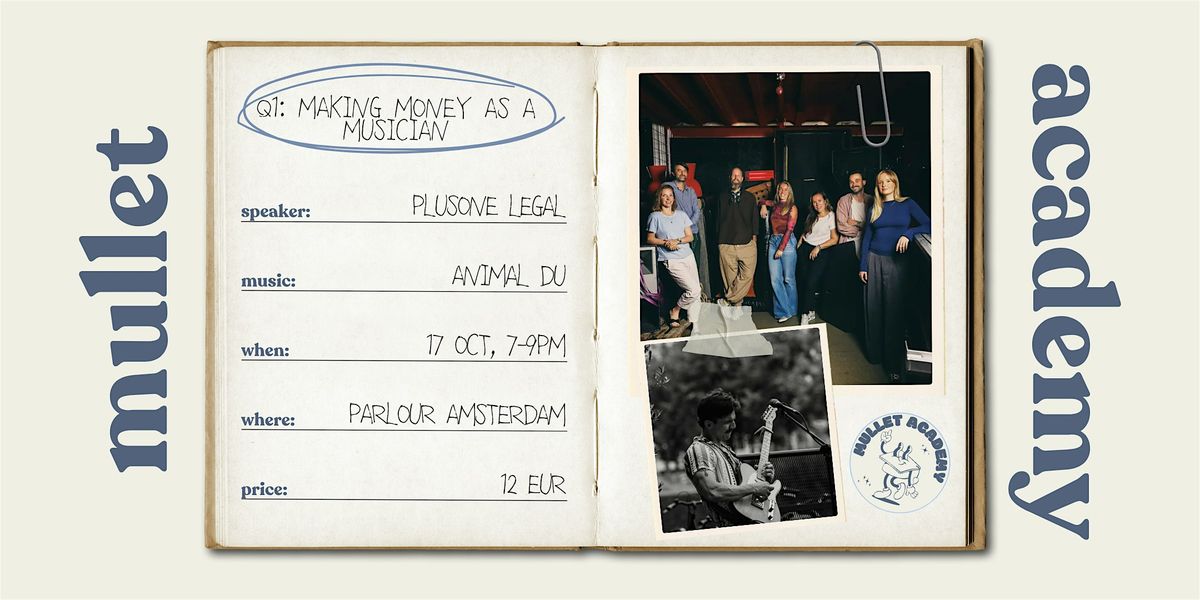 mullet
Q1: MAKING MONEY AS A
MUSICIAN
speaker: PLUSONE LEGAL
music: ANIMAL DU
when: 17 OCT, 7-9PM
where: PARLOUR AMSTERDAM
price: 12 EUR
MULLET ACADEMY
academy